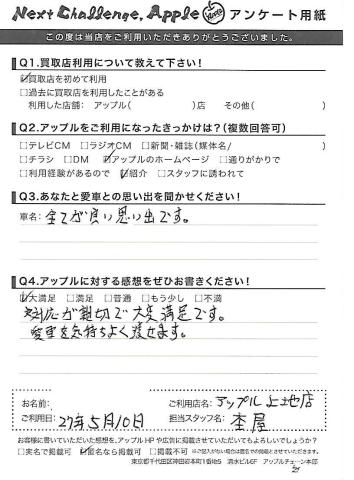 Next Challenge, Apple アンケート用紙
この度は当店をご利用いただきありがとうございました。
Q1.買取店利用について教えて下さい!
☑買取店を初めて利用
□過去に買取店を利用したことがある
利用した店舗: アップル( )店 その他( )
Q2.アップルをご利用になったきっかけは?(複数回答可)
□テレビCM □ラジオCM □新聞・雑誌(媒体名/ )
□チラシ □DM ☑アップルのホームページ □通りがかりで
□利用経験があるので ☑紹介 □スタッフに誘われて
Q3.あなたと愛車との思い出を聞かせください!
車名: 全てが良い思い出です。
Q4.アップルに対する感想をぜひお書きください!
☑大満足 □満足 □普通 □もう少し □不満
対応が親切で大変満足です。
愛車を気持ちよく渡せます。
お名前: ご利用店名: アップル上地店
ご利用日: 27年5月10日 担当スタッフ名: 杢屋
お客様に書いていただいた感想を、アップルHPや広告に掲載させていただいてもよろしいでしょうか?
□実名で掲載可 ☑匿名なら掲載可 □掲載不可 ※ご記入がない場合は匿名での掲載とさせていただきます。
東京都千代田区神田岩本町1番地5 清水ビル6F アップルチェーン本部